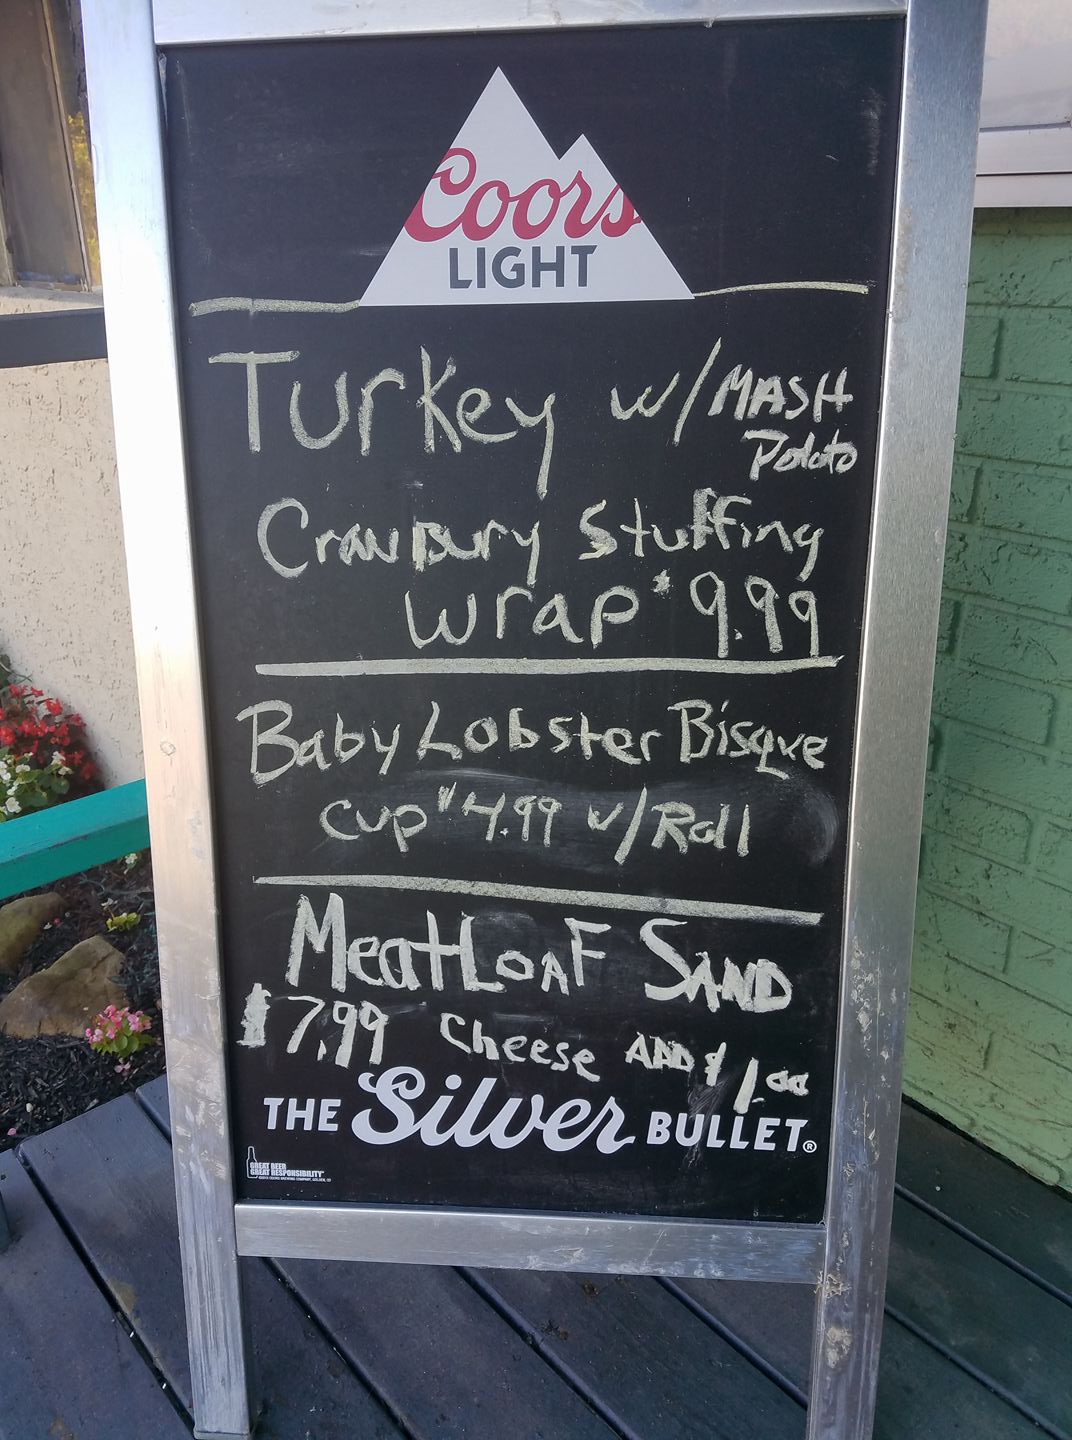 Coors
LIGHT
Turkey w/ MASH
Potato
Cranbury Stuffing
Wrap $9.99
Baby Lobster Bisque
Cup $4.99 w/ Roll
MeatLoaF SAND
$7.99 Cheese ADD $1.00
THE Silver BULLET®
GREAT BEER
GREAT RESPONSIBILITY